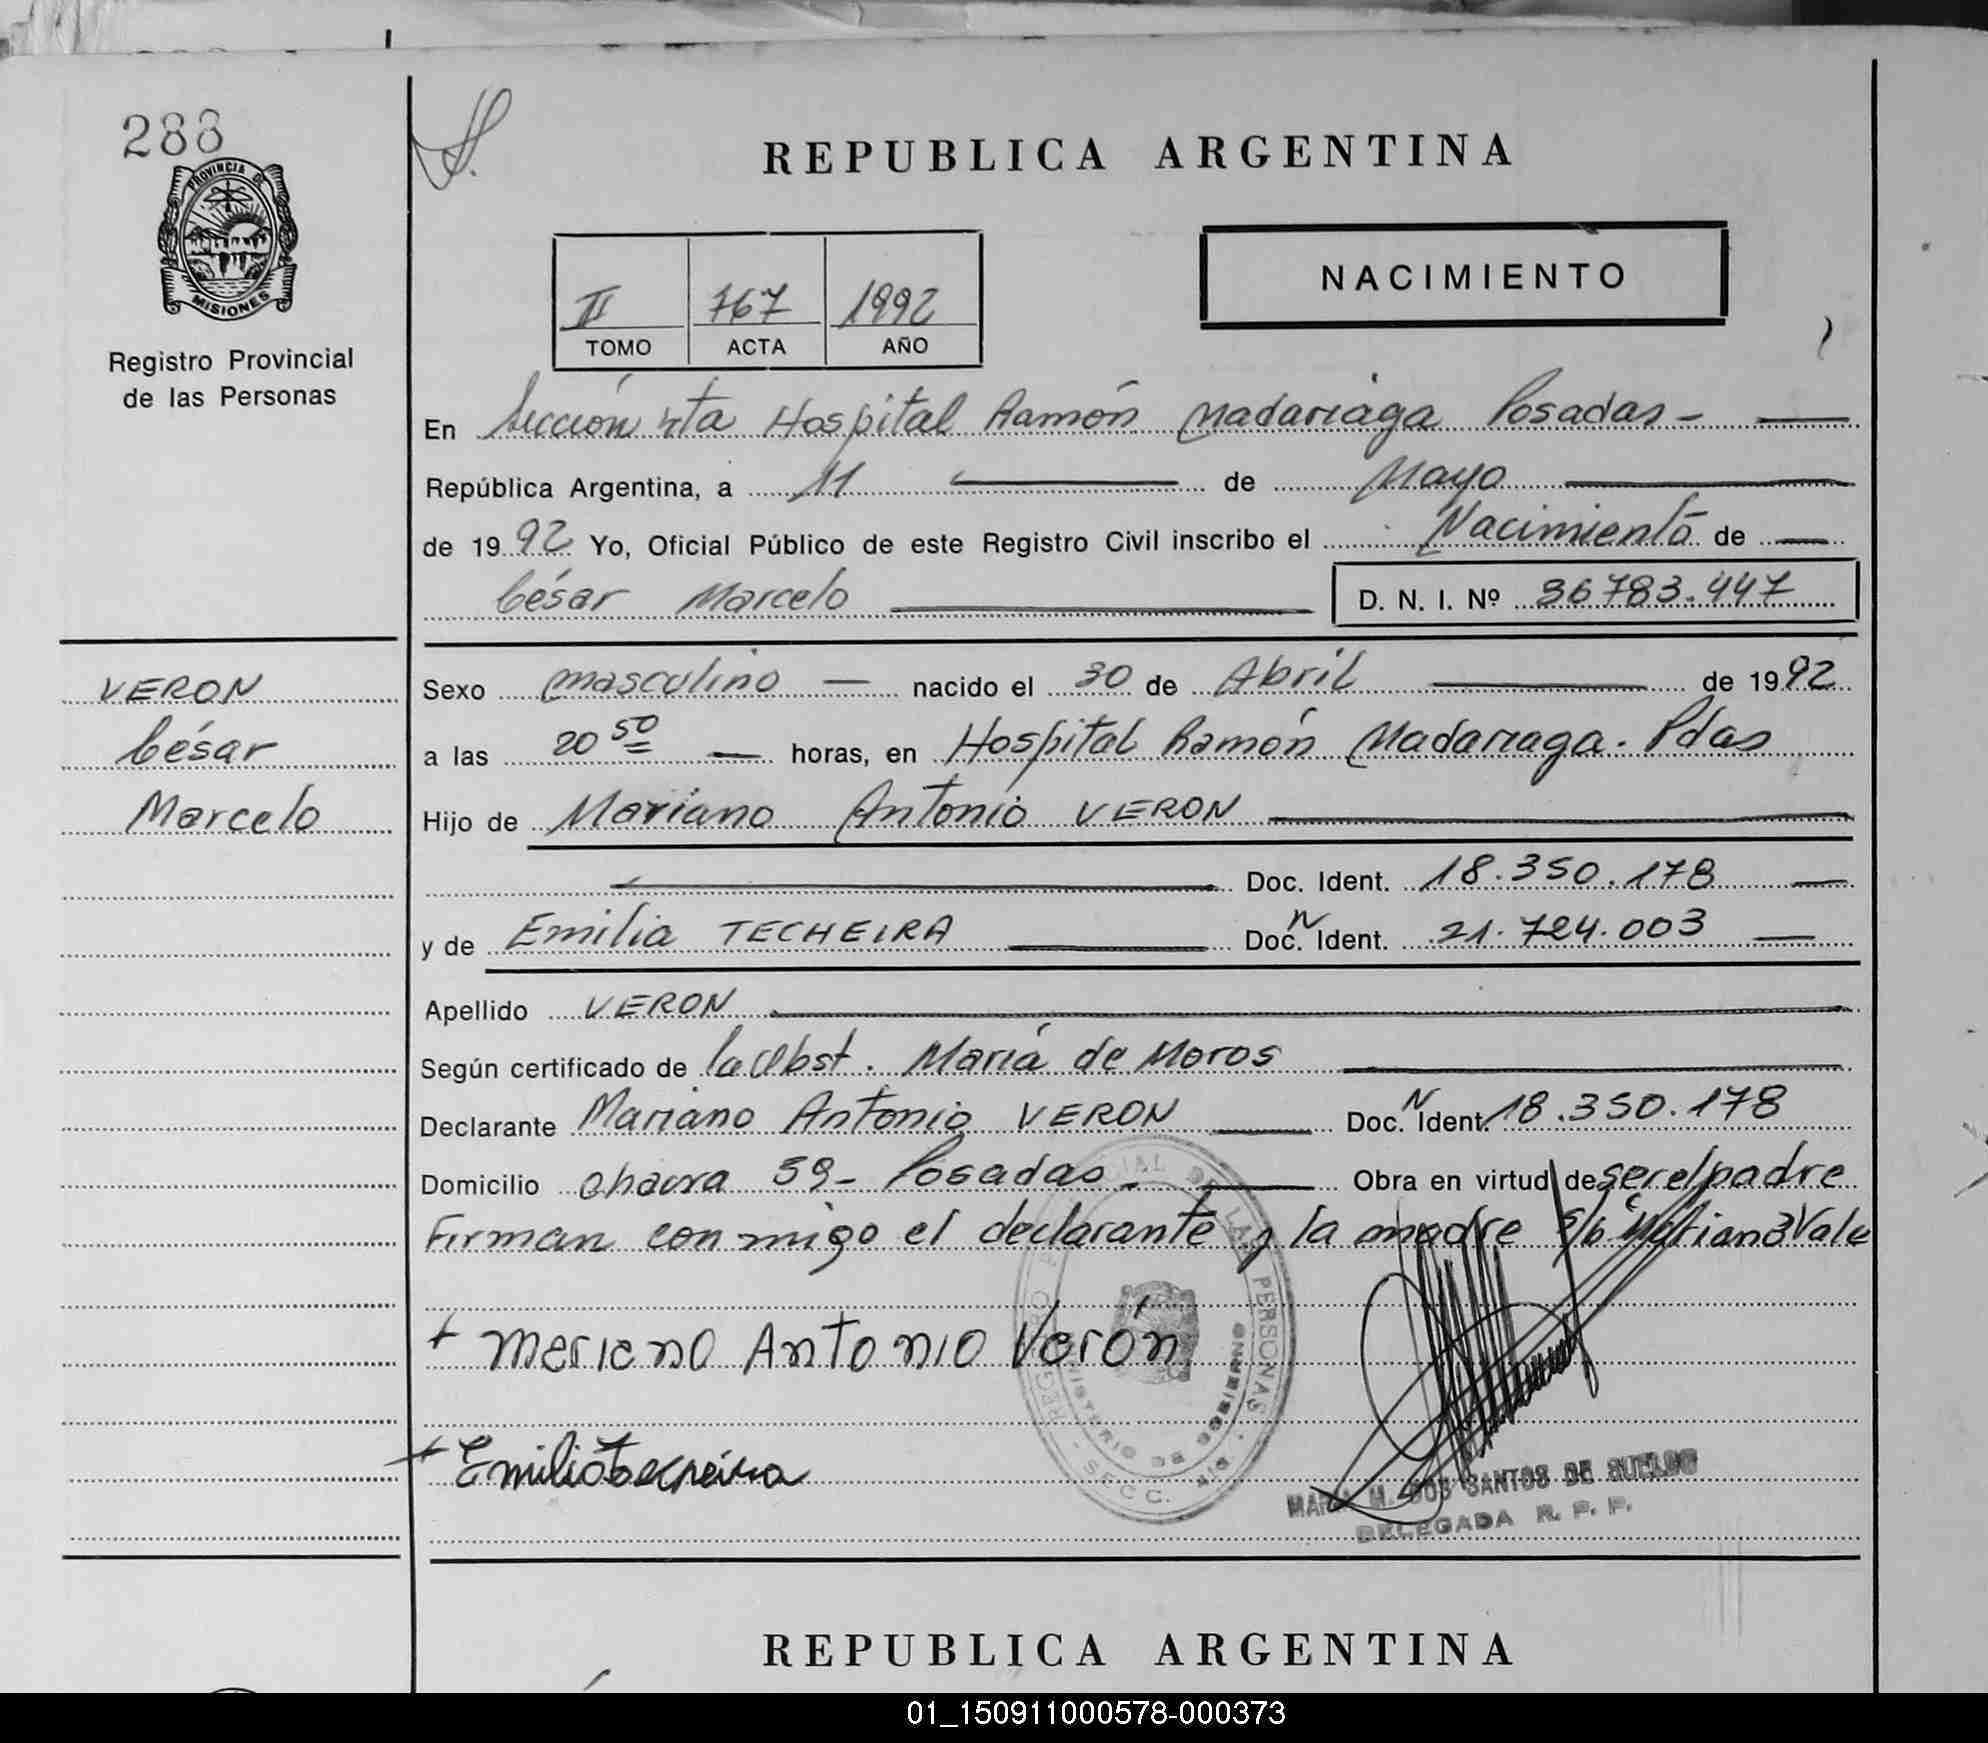 288
PROVINCIA DE
MISIONES
Registro Provincial
de las Personas
REPUBLICA ARGENTINA
II 767 1992
TOMO ACTA AÑO
NACIMIENTO
En Sección Hospital Ramón Madariaga Posadas -
República Argentina, a 11 de Mayo
de 1992 Yo, Oficial Público de este Registro Civil inscribo el Nacimiento de
César Marcelo D. N. I. Nº 36783.447
VERON
César
Marcelo
Sexo masculino nacido el 30 de Abril de 1992
a las 20 50 horas, en Hospital Ramón Madariaga. Pdas
Hijo de Mariano Antonio VERON
Doc. Ident. 18.350.178
y de Emilia TECHEIRA Doc. N Ident. 21.724.003
Apellido VERON
Según certificado de la Obst. María de Moros
Declarante Mariano Antonio VERON Doc. N Ident. 18.350.178
Domicilio chacra 39- Posadas - Obra en virtud de ser el padre
Firman conmigo el declarante y la madre s/b Mariano Vale
+ Meriano Antonio Verón
+ Emilia Techeira
PERSONAS
SECC.
MARIA M. DOS SANTOS DE SUELDO
DELEGADA R. P. P.
REPUBLICA ARGENTINA
01_150911000578-000373